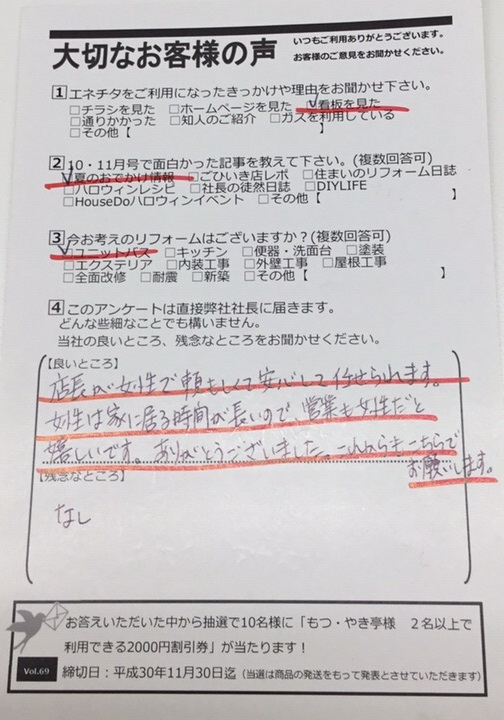 大切なお客様の声
いつもご利用ありがとうございます。
お客様のご意見をお聞かせください。
1 エネチタをご利用になったきっかけや理由をお聞かせ下さい。
□チラシを見た □ホームページを見た ☑看板を見た
□通りかかった □知人のご紹介 □ガスを利用している
□その他【 】
2 10・11月号で面白かった記事を教えて下さい。(複数回答可)
☑夏のおでかけ情報 □ごひいき店レポ □住まいのリフォーム日誌
□ハロウィンレシピ □社長の徒然日誌 □DIYLIFE
□HouseDoハロウィンイベント □その他【 】
3 今お考えのリフォームはございますか?(複数回答可)
☑ユニットバス □キッチン □便器・洗面台 □塗装
□エクステリア □内装工事 □外壁工事 □屋根工事
□全面改修 □耐震 □新築 □その他【 】
4 このアンケートは直接弊社社長に届きます。
どんな些細なことでも構いません。
当社の良いところ、残念なところをお聞かせください。
【良いところ】
店長が女性で頼もしくて安心して任せられます。
女性は家に居る時間が長いので、営業も女性だと
嬉しいです。ありがとうございました。これからもこちらで
お願いします。
【残念なところ】
なし
お答えいただいた中から抽選で10名様に「もつ・やき亭様 2名以上で
利用できる2000円割引券」が当たります!
Vol.69 締切日:平成30年11月30日迄(当選は商品の発送をもって発表とさせていただきます)